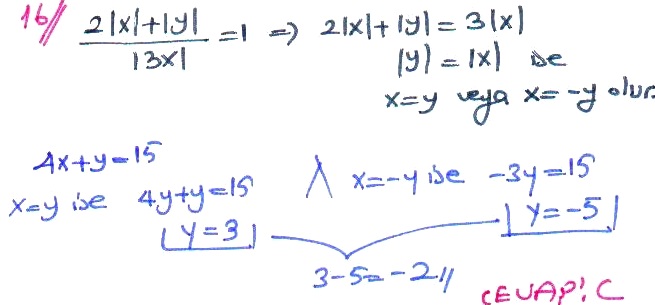 16// 2|x|+|y| / |3x| =1 => 2|x|+|y|=3|x|
|y|=|x| ise
x=y veya x=-y olur.
4x+y=15
x=y ise 4y+y=15 ∧ x=-y ise -3y=15
y=3 y=-5
3-5=-2//
CEVAP: C